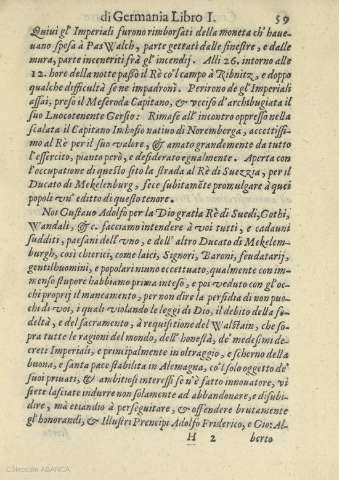 di Germania Libro I. 59
Quiui gl' Imperiali furono rimborsati della moneta ch' haue-
uano spesa à PasWalch, parte gettati dalle finestre, e dalle
mura, parte inceneriti frà gl' incendij. Alli 26. intorno alle
12. hore della notte passò il Rè co'l campo à Ribnitz, e doppo
qualche difficultà se ne impadronì. Perirono de gl' Imperiali
assai, preso il Meseroda Capitano, & vcciso d'archibugiata il
suo Luocotenente Gersio: Rimase all' incontro oppresso nella
scalata il Capitano Imhosio natiuo di Noremberga, accettissi-
mo al Rè per il suo valore, & amato grandemente da tutto
l'essercito, pianto però, e desiderato egualmente. Aperta con
l'occupatione di questo sito la strada al Rè di Suezzia, per il
Ducato di Mekelenburg, fece subitamēte promulgare à quei
popoli vn' editto di questo tenore.
Noi Gustauo Adolfo per la Dio gratia Rè di Suedi, Gothi,
Wandali, &c. facciamo intendere à voi tutti, e cadauni
sudditi, paesani dell' vno, e dell' altro Ducato di Mekelem-
burgh, così chierici, come laici, Signori, Baroni, feudatarij,
gentilhuomini, e popolari niuno eccettuato, qualmente con im-
menso stupore habbiamo prima inteso, e poi veduto con gl'oc-
chi proprij il mancamento, per non dire la perfidia di non puo-
chi di voi, i quali violando le leggi di Dio, il debito della fe-
deltà, e del sacramento, à requisitione del Walstain, che so-
pra tutte le ragioni del mondo, dell' honestà, de' medesimi de-
creti Imperiali, e principalmente in oltraggio, e scherno della
buona, e santa pace stabilita in Alemagna, co'l solo oggetto de'
suoi priuati, & ambitiosi interessi se n'è fatto innouatore, vi
siete lasciate indurre non solamente ad abbandonare, e disubi-
dire, mà etiandio à perseguitare, & offendere brutamente
gl' honorandi, & Illustri Prencipi Adolfo Friderico, e Gio: Al-
H 2 berto
Colección ABANCA